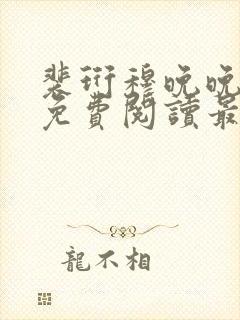 裴衍穆晚晚
免費閱讀最
龍不相